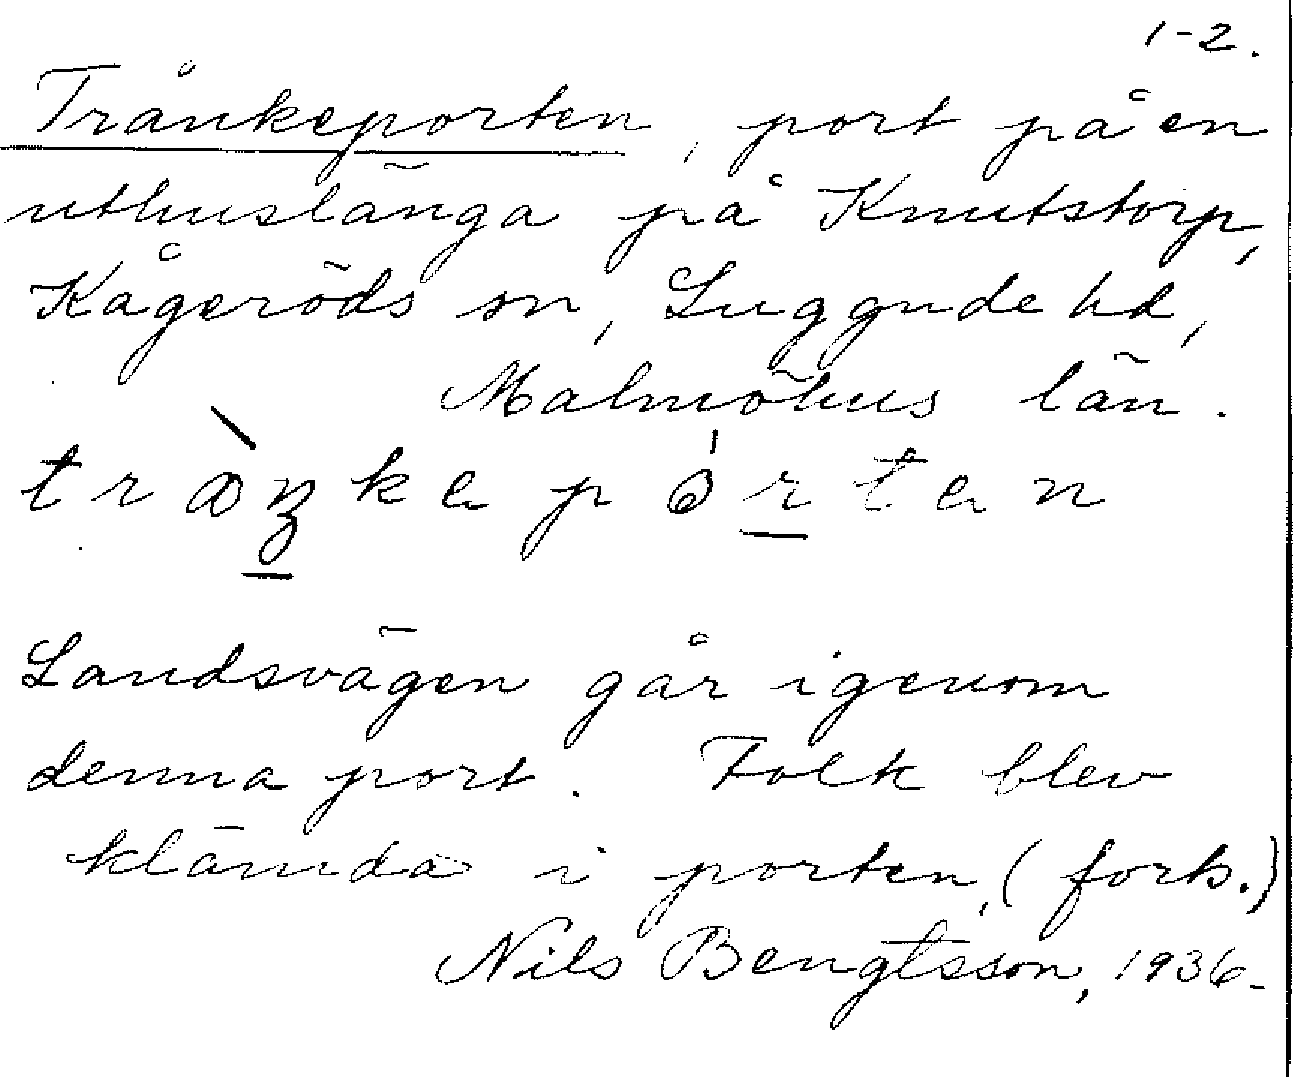 1-2.
Trånkeporten, port på en
uthuslänga på Knutstorp,
Kågeröds sn, Luggude hd,
Malmöhus län.
Landsvägen går igenom
denna port. Folk blev
klämda i porten, (forts.)
Nils Bengtsson, 1936-